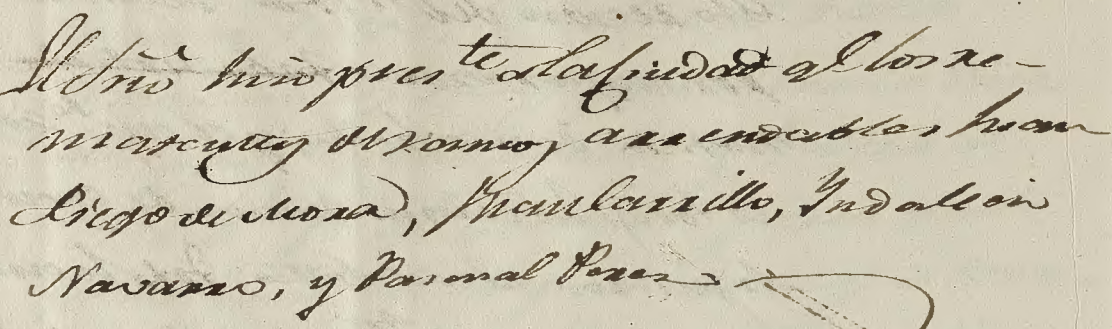 El Srio hizo preste a la Ciudad qe los re-
matantes de ramos arrendables Juan
Diego de Mora, Juan Carrillo, Yndalecio
Navarro, y Pasqual Perez